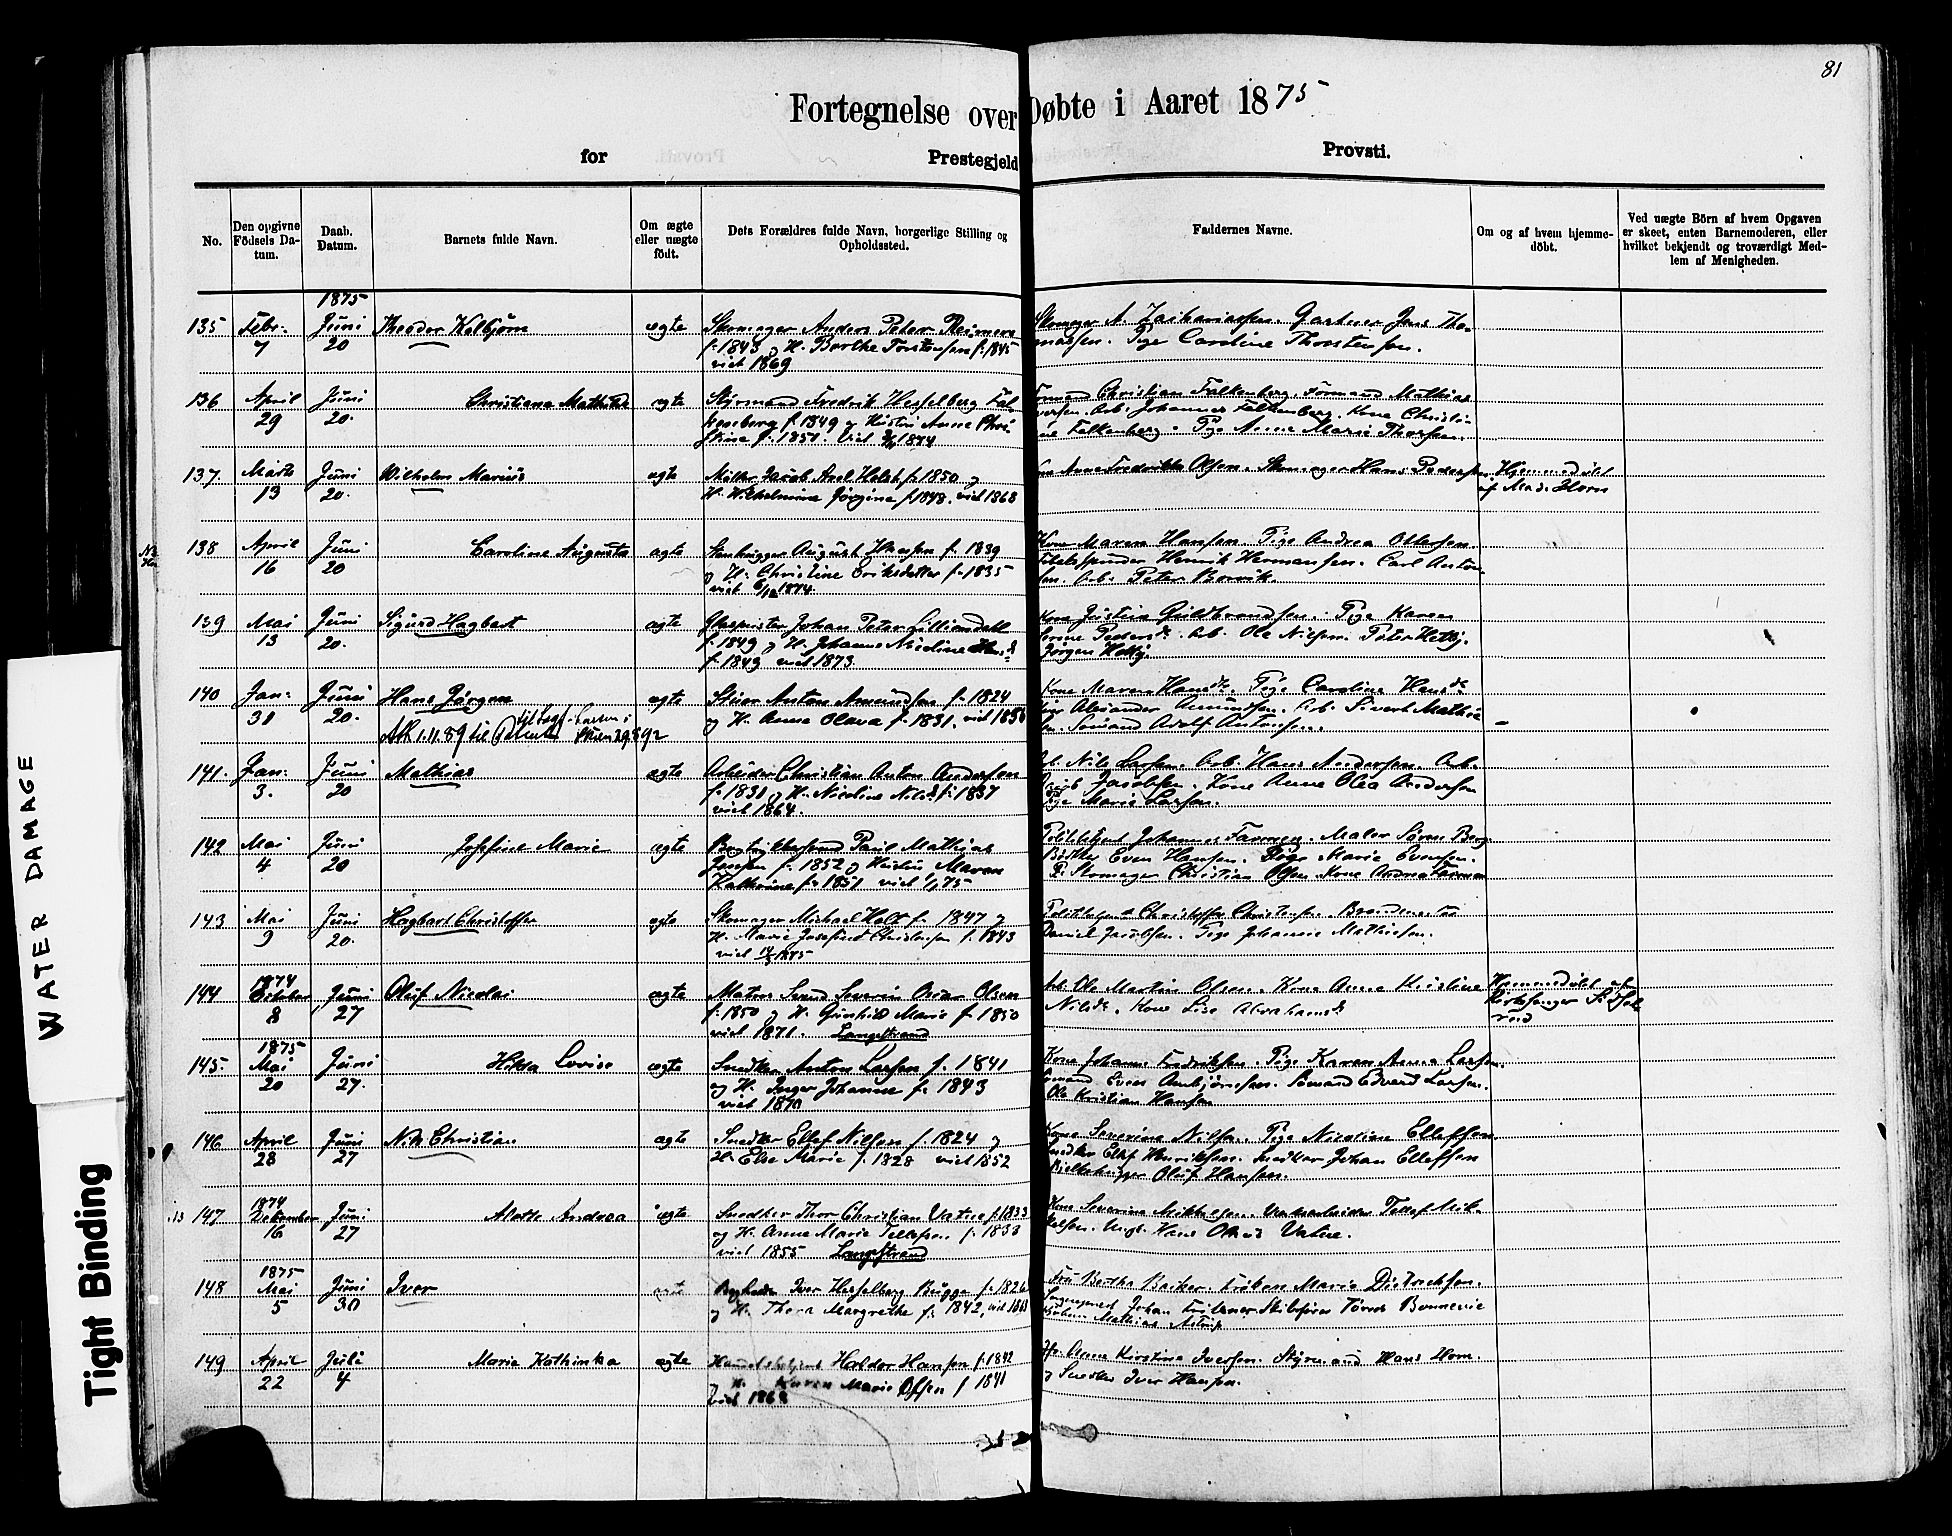 81
Fortegnelse over Døbte i Aaret 1875
for Prestegjeld Provsti.
No.
Den opgivne Födsels Da-
tum.
Daab.
Datum.
Barnets fulde Navn.
Om ægte
eller uægte
födt.
Dets Forældres fulde Navn, borgerlige Stilling og
Opholdssted.
Faddernes Navne.
Om og af hvem hjemme-
döbt.
Ved uægte Börn af hvem Opgaven
er skeet, enten Barnemoderen, eller
hvilket bekjendt og troværdigt Med-
lem af Menigheden.
1875
135 Febr. 7 Juni 20 Theodor Kolbjørn ægte Skomager Anders Peter Reimers
f. 1843 og H. Berthe Torstensen f. 1845
viet 1869
Skomager A. Zachariassen. Gartner Jens Tho-
massen. Pige Caroline Thorstensen.
136 April 29 Juni 20. Christiane Mathilde ægte Styrmand Fredrik Hesselberg Fal-
kenberg f. 1849 og Hustru Anne Chri-
stine f. 1851. Viet 1874
Christian Falkenberg. Formand Mathias
Iversen. Arb. Johannes Falkenberg. Kone Christi-
ne Falkenberg. Pige Anne Marie Thorsen.
137. Marts 13 Juni 20. Wilhelm Marius ægte Møller Jacob Axel Holst f. 1850 og
H. Wilhelmine Jørgine f. 1848. viet 1868
Anne Fredrikke Olsen. Skomager Hans Pedersen
Hjemmedöbt
af Mad. Horn
138 April 16 Juni 20 Caroline Augusta ægte Stenhugger August Hansen f. 1839
og H. Christine Eriksdatter f. 1835
viet 6/12 1874.
Kone Maren Hansen. Pige Andrea Ottersen.
Henrik Hermansen. Carl Anton-
sen. Arb. Peter Borvik.
139 Mai 13 Juni 20. Sigurd Hagbart ægte Glaspuster Johan Peter Lilliendahl
f. 1849 og H. Johanne Nicoline
f. 1849 viet 1873.
Kone Justine Guldbrandsen. Pige Karen
Sorine Pedersd. Arb. Ole Nilsen. Peter Hetby.
Jørgen Hetby.
140 Jan: 31 Juni 20. Hans Jørgen ægte Anton Amundsen f. 1824
og H. Anne Olava f. 1831. viet 1856
Att. 1.11.89 til
Kone Maren Hansd. Pige Caroline Hansd.
Alexander Amundsen. Arb. Sivert Mathi-
sen. Sømand Adolf Antonsen.
141. Jan: 3. Juni 20 Mathias ægte Arbeider Christian Anton Andersen
f. 1831 og H. Nicoline Nilsd. f. 1837
viet 1864.
Nils Larsen. Arb. Hans Andersen. Arb.
Jacobsen. Kone Anne Olea Andersen
Pige Marie Larsen.
142 Mai 4 Juni 20 Josefine Marie ægte Paul Mathias
Jensen f. 1852 og Hustru Maren
Kathrine f. 1851 viet 1/1 75
Politibetjent Johannes Farmen. Maler Søren Berg
Bødker Even Hansen. Pige Marie Evensen.
Skomager Christian Olsen. Kone Andrea Farmen
143 Mai 9 Juni 20. Hagbart Christoffer ægte Skomager Michael Holt f. 1847 og
H. Marie Josefine Christensen f. 1843
viet 1875
Politibetjent Christoffer Christensen.
Daniel Jacobsen. Pige Johanne Mathisen.
144 1874 October 8 Juni 27 Oluf Nicolai ægte Matros Svend Severin Oscar Olsen
f. 1850 og H. Gunhild Marie f. 1850
viet 1871. Langestrand
Arb. Ole Martin Olsen. Kone Anne Kristine
Nilsd. Kone Lise Abrahamsd.
Hjemmedöbt af
Kirkesanger
145. 1875 Mai 20 Juni 27. Hilda Lovise ægte Snedker Anton Larsen f. 1841
og H. Inger Johanne f. 1843
viet 1870
Kone Johanne Fredriksen. Pige Karen Anna Larsen.
Sømand Even Arnbjørnsen. Sømand Edvard Larsen.
Ole Kristian Hansen
146 April 28 Juni 27 Nils Christian ægte Snedker Ellef Nilsen f. 1824 og
H. Else Marie f. 1828 viet 1852
Kone Severine Nilsen. Pige Nicoline Ellefsen
Snedker Ellef Henriksen. Snedker Johan Ellefsen
Oluf Hansen.
147 1874 December 16 Juni 27 Mette Andrea ægte Snedker Thor Christian Vatne f. 1833
og H. Anne Marie Tellefsen f. 1833
viet 1855 Langestrand
Kone Severine Mikkelsen. Tellef Mik-
kelsen. Ungk. Hans Olaus Vatne.
148 1875 Mai 5 Juni 30 Iver ægte Iver Hesselberg Brügge f. 1826
og H. Thora Margrethe f. 1842, viet 1868
Fru Bertha Barker. Frøken Marie Diedrichsen.
Johan Skibsfører Tønnes Bonnevie
Mathias Astrup
149 April 22 Juli 4 Marie Kathinka ægte Handelsbetjent Haldor Hansen f. 1842
og H. Karen Marie Olsen f. 1841
viet 1868
Anne Kirstine Iversen. Styrmand Hans Horn
og Snedker Iver Hansen.
WATER DAMAGE
Tight Binding